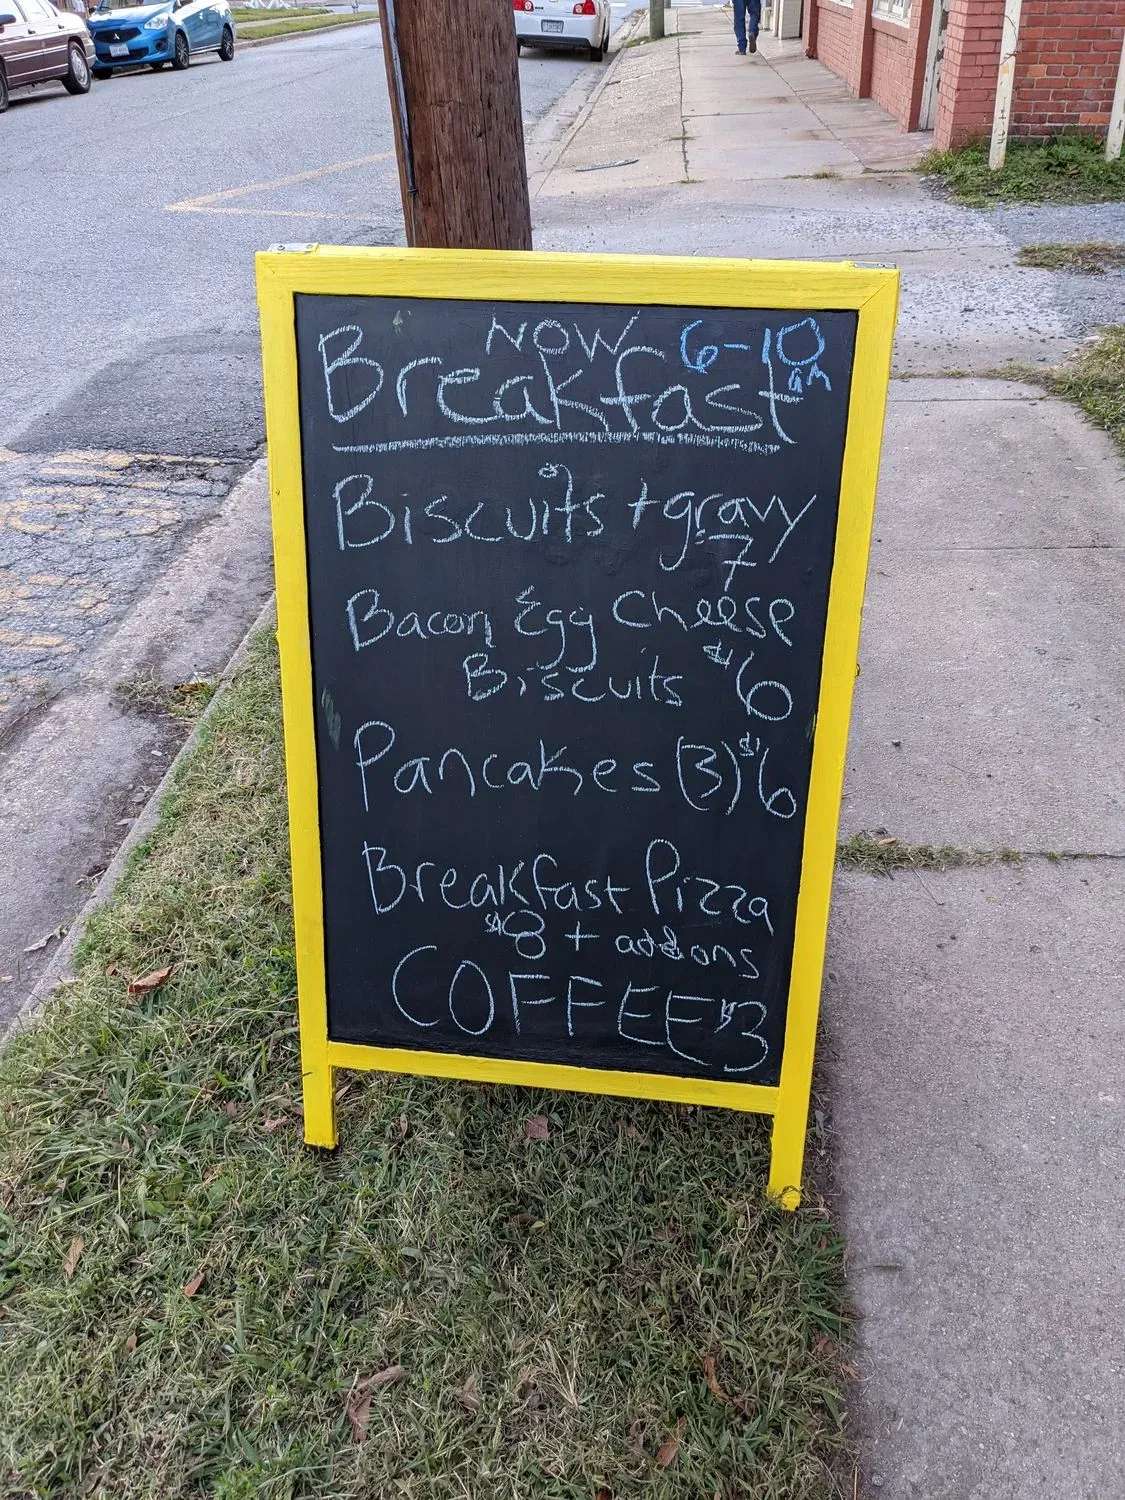 NOW 6-10 am
Breakfast
Biscuits + gravy
7
Bacon Egg Cheese
Biscuits $6
Pancakes (3) $6
Breakfast Pizza
$8 + addons
COFFEE $3